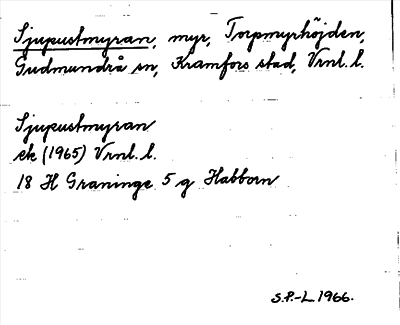 Sjupustmyran, myr, Torpmyrhöjden,
Gudmundrå sn, Kramfors stad, Vrnl. l.
Sjupustmyran
ek (1965) Vrnl. l.
18 H Graninge 5 g Habborn
S.P.-L 1966.